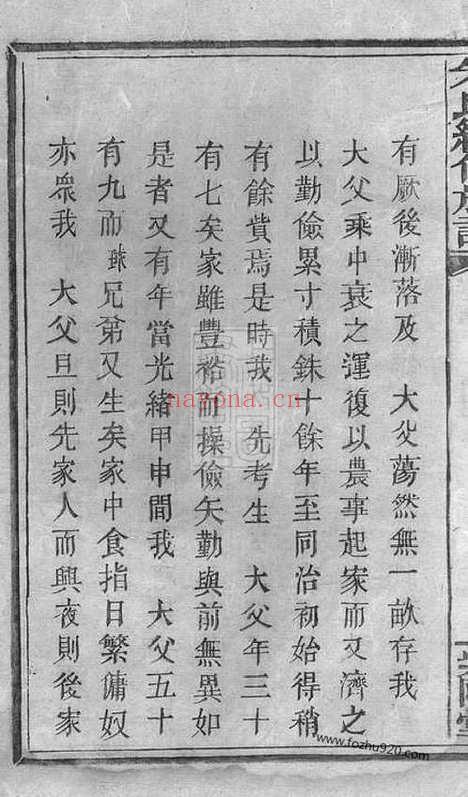 有厥後漸落及　大父蕩然無一畝存我
大父乘中衰之運復以農事起家而又濟之
以勤儉累寸積銖十餘年至同治初始得稍
有餘貲焉是時我　先考生　大父年三十
有七矣家雖豐裕而操儉矢勤與前無異如
是者又有年當光緒甲申間我　大父五十
有九而球兄弟又生矣家中食指日繁傭奴
亦衆我　大父旦則先家人而興夜則後家
nayona.cn
www.fozhu920.com